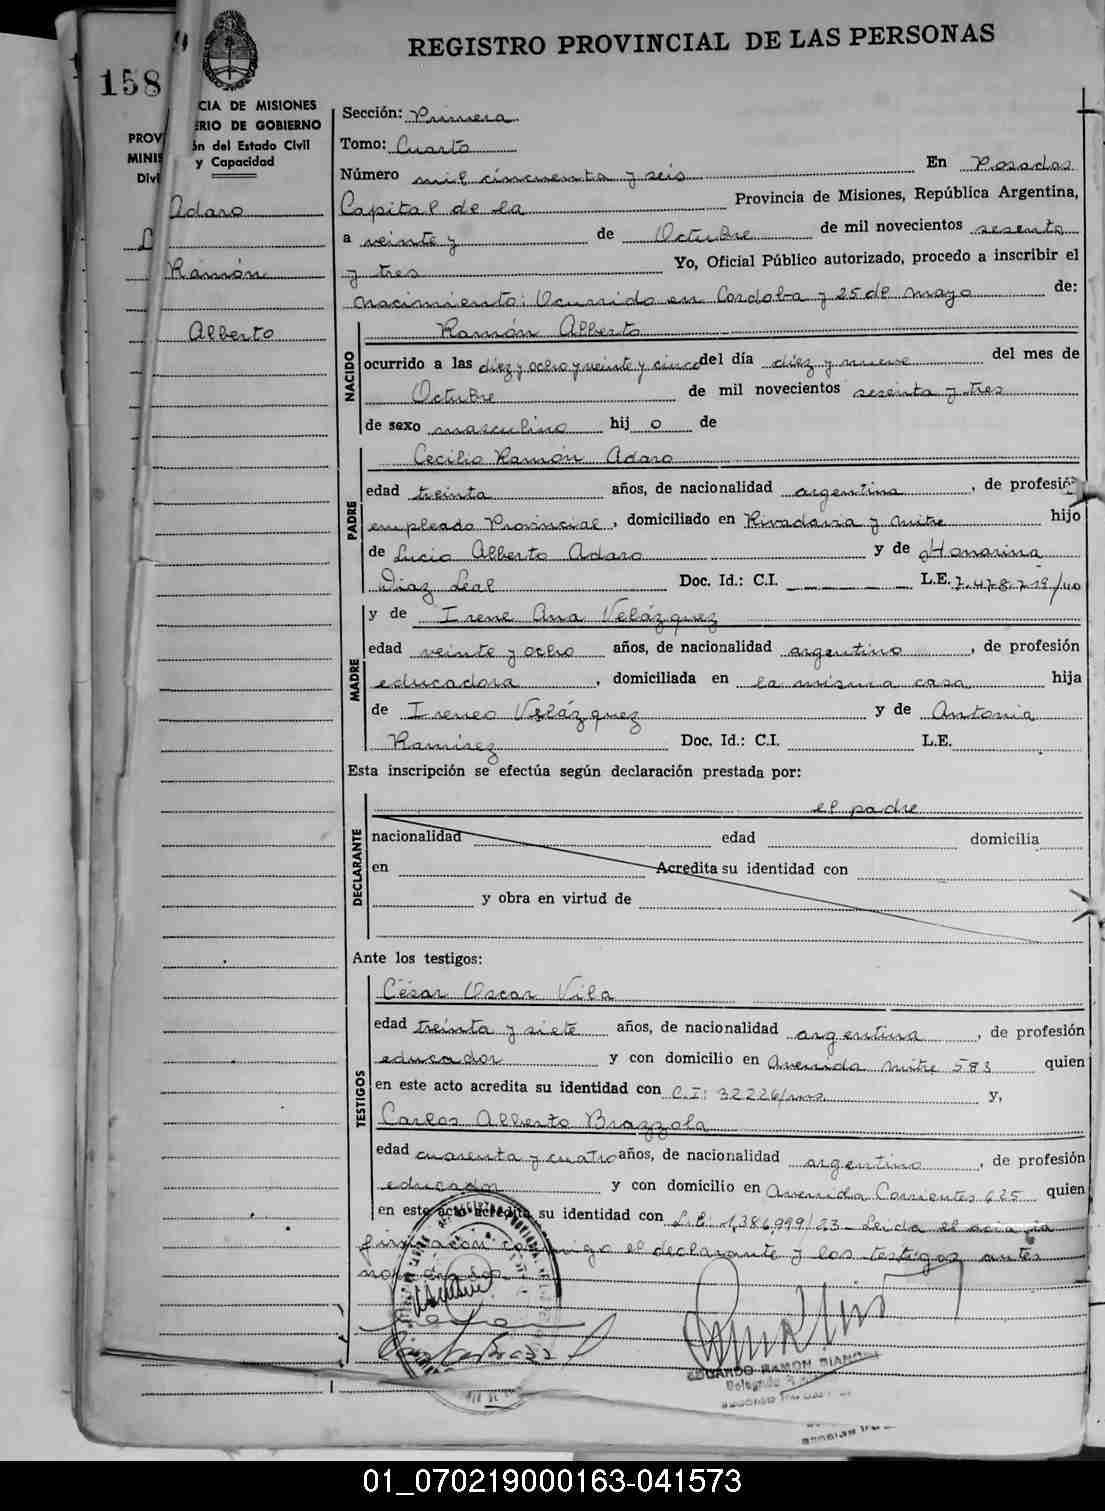 REGISTRO PROVINCIAL DE LAS PERSONAS
158
9
CIA DE MISIONES
ERIO DE GOBIERNO
n del Estado Civil
y Capacidad
PROV
MINIS
Divi
Adaro
Ramón
Alberto
Sección: Primera
Tomo: Cuarto
Número mil cincuenta y seis En Posadas
Capital de la Provincia de Misiones, República Argentina,
a veinte y de Octubre de mil novecientos sesenta
y tres Yo, Oficial Público autorizado, procedo a inscribir el
nacimiento: Ocurrido en Cordoba y 25 de Mayo de:
NACIDO
Ramón Alberto
ocurrido a las diez y ocho y veinte y cinco del día diez y nueve del mes de
Octubre de mil novecientos sesenta y tres
de sexo masculino hij o de
PADRE
Cecilio Ramón Adaro
edad treinta años, de nacionalidad argentina, de profesión
empleado Provincial, domiciliado en Rivadavia y Mitre hijo
de Lucio Alberto Adaro y de Honorina
Diaz Leal Doc. Id.: C.I. L.E. 7.478.719/40
MADRE
y de Irene Ana Velázquez
edad veinte y ocho años, de nacionalidad argentino, de profesión
educadora, domiciliada en la misma casa hija
de Ireneo Velázquez y de Antonia
Ramirez Doc. Id.: C.I. L.E.
Esta inscripción se efectúa según declaración prestada por:
DECLARANTE
el padre
nacionalidad edad domicilia
en Acredita su identidad con
y obra en virtud de
Ante los testigos:
TESTIGOS
César Oscar Vila
edad treinta y siete años, de nacionalidad argentina, de profesión
educador y con domicilio en Avenida Mitre 583 quien
en este acto acredita su identidad con C.I: 32226/mns y,
Carlos Alberto Brazzola
edad cuarenta y cuatro años, de nacionalidad argentino, de profesión
educador y con domicilio en Avenida Corrientes 625 quien
en este acto acredita su identidad con L.E. 1,386,999/23- Leida el acta la
firmaron conmigo el declarante y los testigos antes
nombrados
EDUARDO RAMON
Delegado
01_070219000163-041573